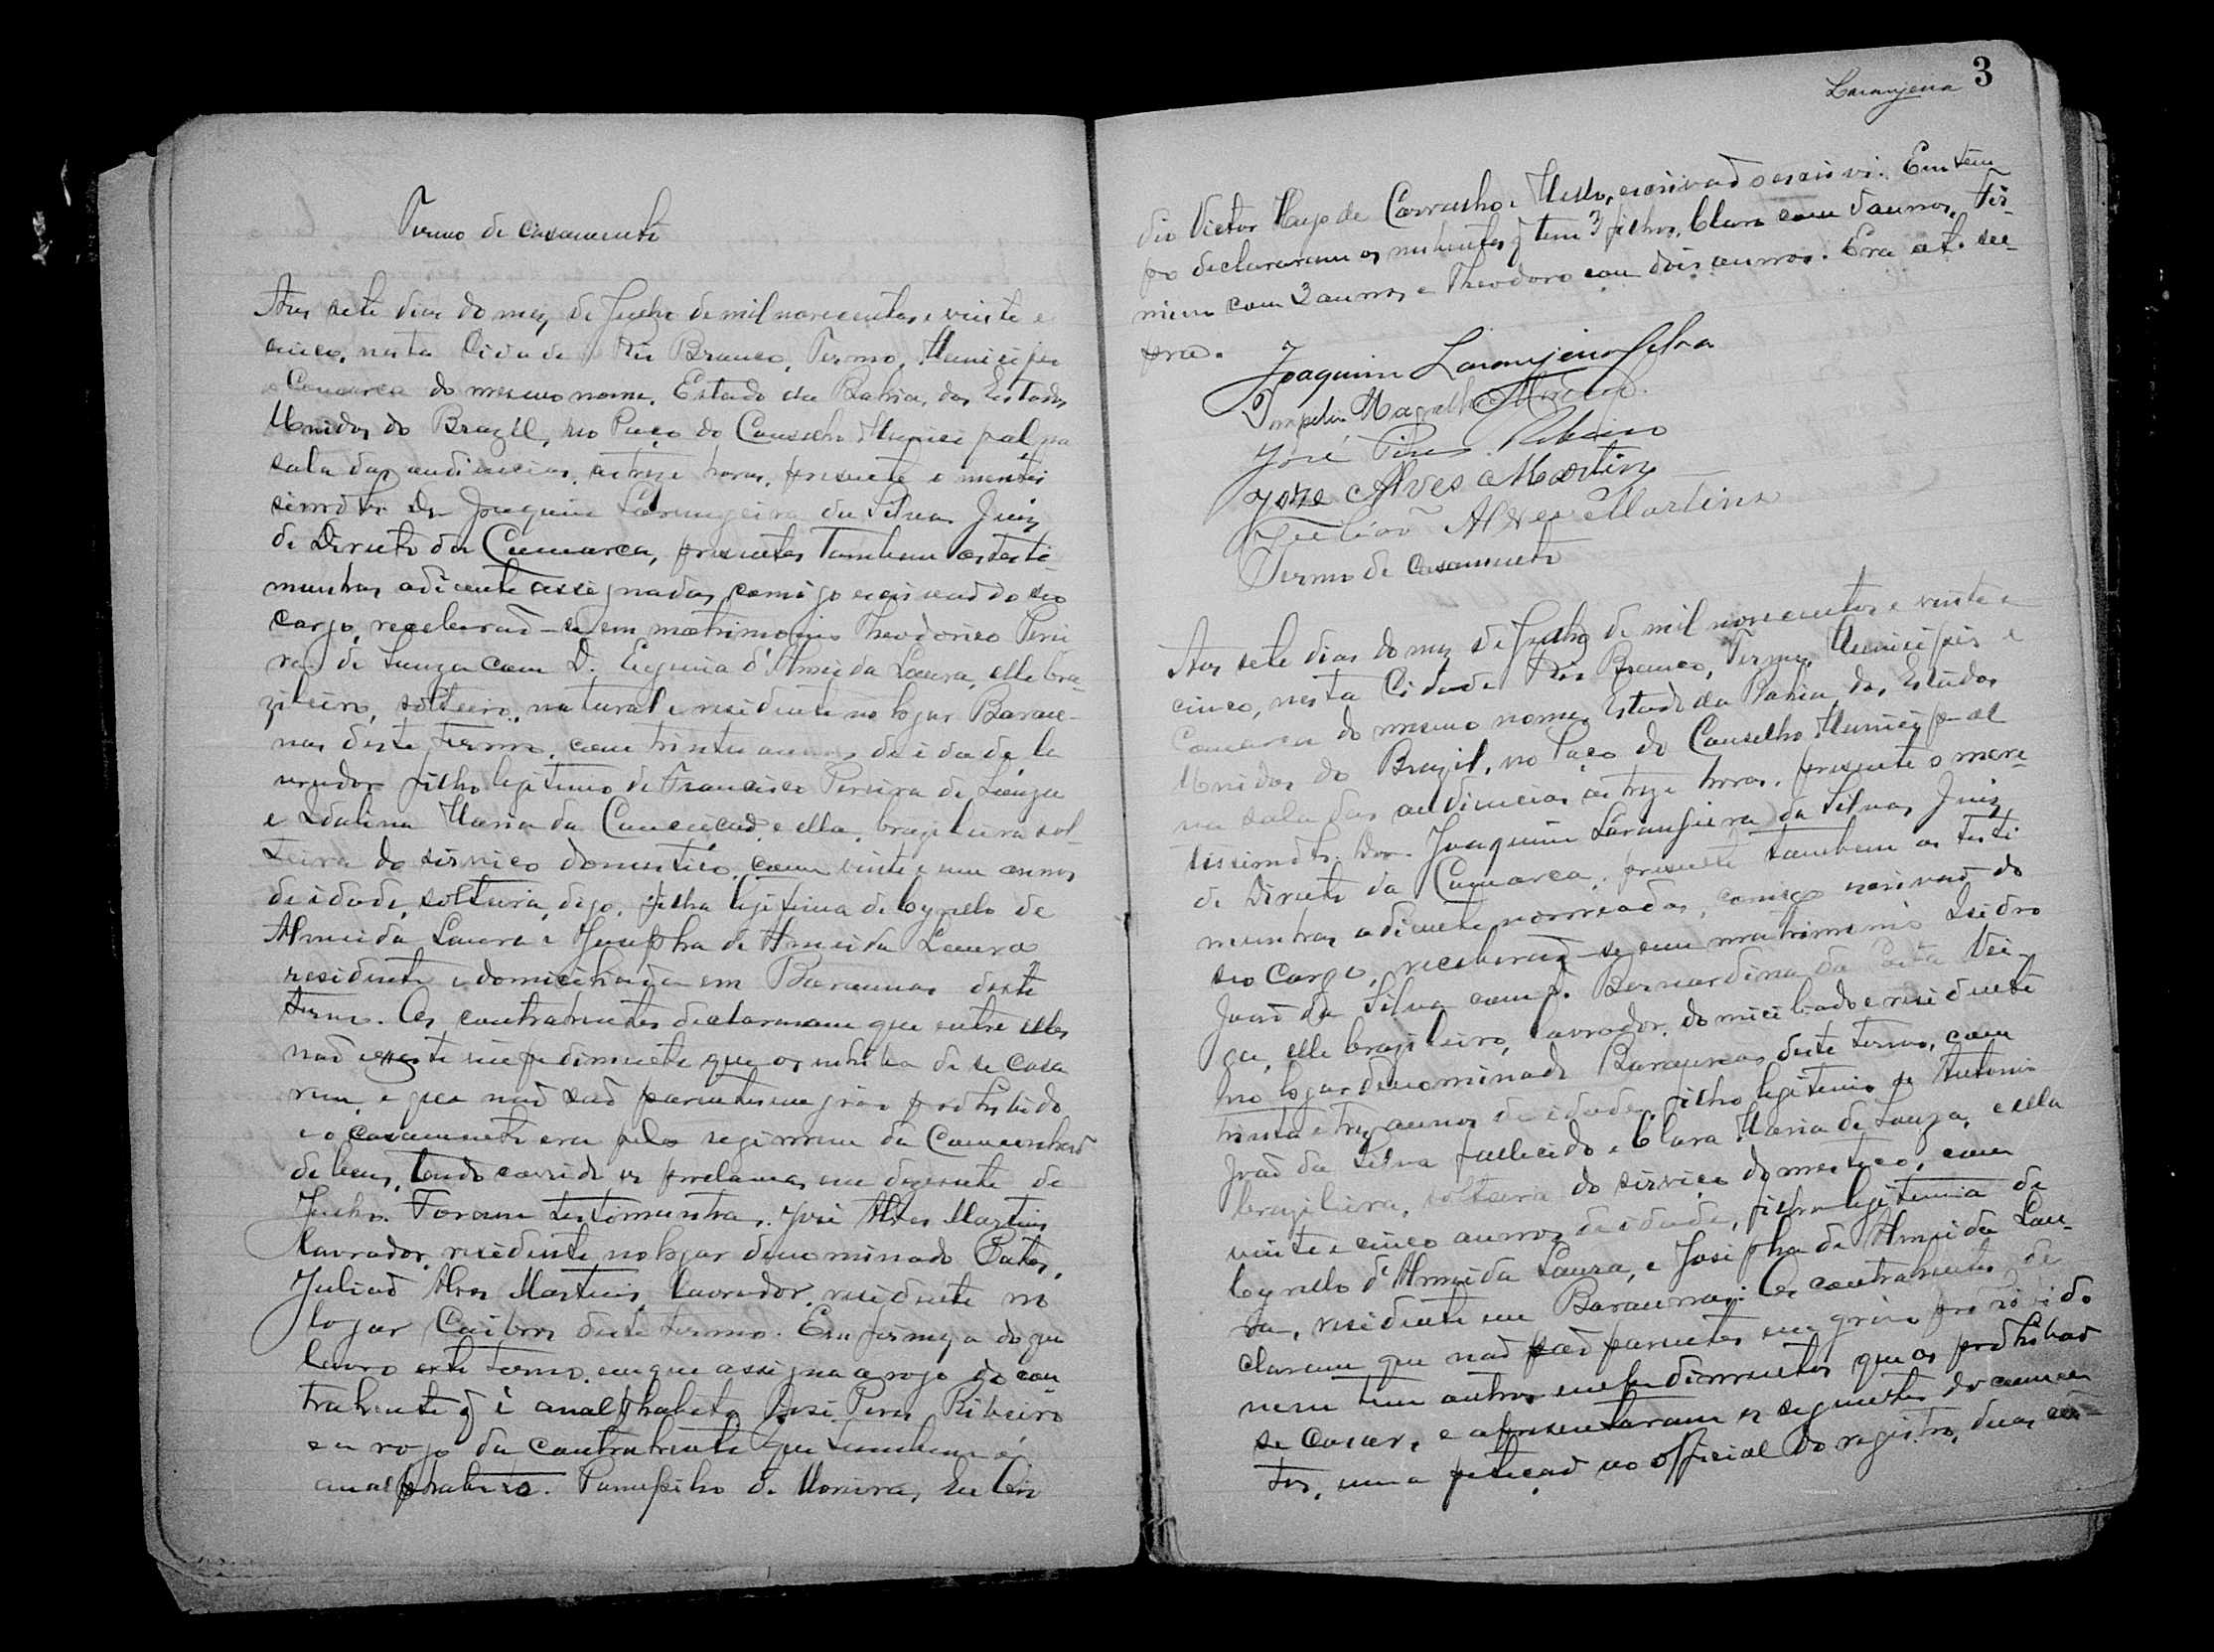 Termo de casamento
Aos sete dias do mez de Julho de mil novecentos e vinte e
cinco, nesta Cidade Rio Branco, Termo, Municipio
e Comarca do mesmo nome, Estado da Bahia, dos Estados
Unidos do Brazil, no Paço do Conselho Municipal na
sala das audiencias, as treze horas, presente o meretis
simo Dr. Joaquim Laranjeira da Silva, Juiz
de Direito da Comarca, presentes tambem as teste
munhas adiante assignadas, comigo escrivad do seo
cargo, receberaõ-se em matrimonio Theodorico Perei
ra de Souza com D. d'Almeida Loura, elle bra-
zileiro, solteiro, natural e residente no logar Barau-
nas deste termo, com trinta annos de idade, la
vrador filho legitimo de Francisco Pereira de Souza
e Idalina Maria da Conceicaõ, e ella, brazileira sol-
teira do serviço domestico, com vinte e um annos
de idade, solteira, digo, filha legitima de Cyrillo de
Almeida Loura e Josepha de Almeida Loura
residente e domiciliada em Baraunas deste
termo. Os contrahentes declararam que entre elles
naõ existe impedimento que os inhiba de se casa
rem, e que naõ saõ parentes em gráo prohibido
e o casamento era pelo regimem da Communhaõ
de bens, tendo corrido os proclamas em dezesete de
Junho. Foram testemunhas. José Alves Martins
lavrador, residente no logar denominado Patos,
Juliaõ Alves Martins, lavrador, residente no
logar Caibros deste termo. Em firmeza do que
lavro este termo, em que assigna a rogo do con-
trahente q é analphabeto José Pires Ribeiro
e a rogo da contrahente que tambem é
analphabeta. Pompilho de Moreira, Eu
3
Laranjeira
dio Victor Hugo de Carvalho e Mello, escrivaõ o escrivi. Em tem-
po declararam os nubentes q tem 3 filhos, Clara com annos,
com 3 annos e Theodoro com dois annos. Era at. su-
pra.
Joaquim Laranjeira Silva
José Pires Ribeiro
José Alves Martins
Julião Alves Martins
Termo de Casamento
Aos sete dias do mez de Julho de mil novecentos e vinte e
cinco, nesta Cidade Rio Branco, Termo, Municipio e
Comarca do mesmo nome, Estado da Bahia, dos Estados
Unidos do Brazil, no Paço do Conselho Municipal
na sala das audiencias, as treze horas, presente o mere-
tissimo Dr. Joaquim Laranjeira da Silva, Juiz
de Direito da Comarca, presente tambem as teste
munhas adiante nomeadas, comigo escrivaõ do
seo Cargo, receberaõ-se em matrimonio Isidro
Joaõ da Silva com D. Bernardina da Costa Vei-
ga, elle brazileiro, lavrador, domiciliado e residente
no logar denominado Baraunas deste termo, com
trinta e tres annos de idade, filho legitimo de Antonio
Joaõ da Silva fallecido e Clara Maria de Souza, e ella
brazileira, solteira do serviço domestico, com
vinte e cinco annos de idade, filha legitimia de
Cyrillo d'Almeida Loura, e Josepha de Almeida Lou-
ra, residente em Baraunas. Os contrahentes de
claram que naõ saõ parentes em gráo prohibido
nem tem outros impedimentos que os prohibaõ
se casar, e apresentaram os seguintes documen
tos, uma petiçaõ ao official do registro, duas cer-